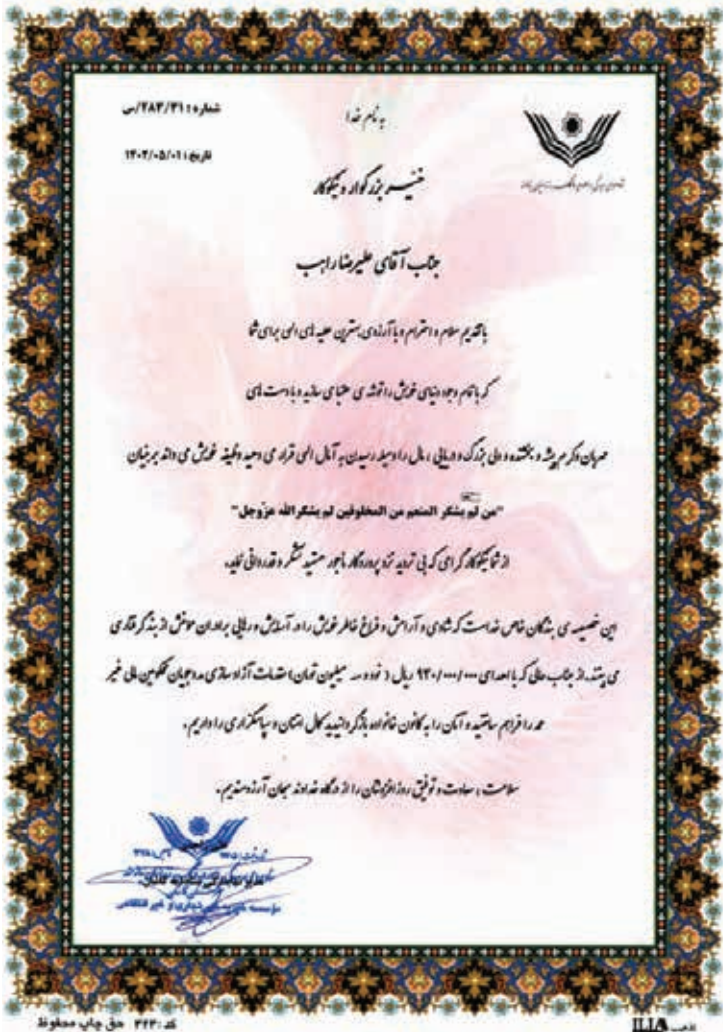 شماره: ۲۸۳/۳۱/س
به نام خدا
تاریخ: ۱۴۰۲/۰۵/۰۱
خیر بزرگوار و نیکوکار
جناب آقای علیرضا راهب
با تقدیم سلام و احترام و با آرزوی بهترین عطیه های الهی برای شما
که با تمام وجود دنیای خویش را توشه ی عقبای سازید و با دست های
مهربان و کرم پیشه و بخشنده و دلی بزرگ و دریایی، مال را وسیله رسیدن به آمال الهی قرار می دهید وظیفه خویش می داند بر بنیان
"من لم یشکر المنعم من المخلوقین لم یشکر الله عزّوجل"
از شما نیکوکار گرامی که بی تردید نزد پروردگار ماجور هستید تشکر و قدردانی نماید.
این خصیصه ی بندگان خاص خداست که شادی و آرامش و فراغ خاطر خویش را در آسایش و رهایی برادران مومنش از بند گرفتاری
می بینند. از جناب عالی که با اهدای ۹۳۰/۰۰۰/۰۰۰ ریال ( نود و سه میلیون تومان) مقدمات آزادسازی مددجویان محکومین مالی غیر
عمد را فراهم ساختید و آنان را به کانون خانواده بازگردانیدید کمال امتنان و سپاسگزاری را داریم.
سلامت، سعادت و توفیق روزافزونتان را از درگاه خداوند سبحان آرزومندیم.
کد: ۴۲۳ حق چاپ محفوظ
ILIA